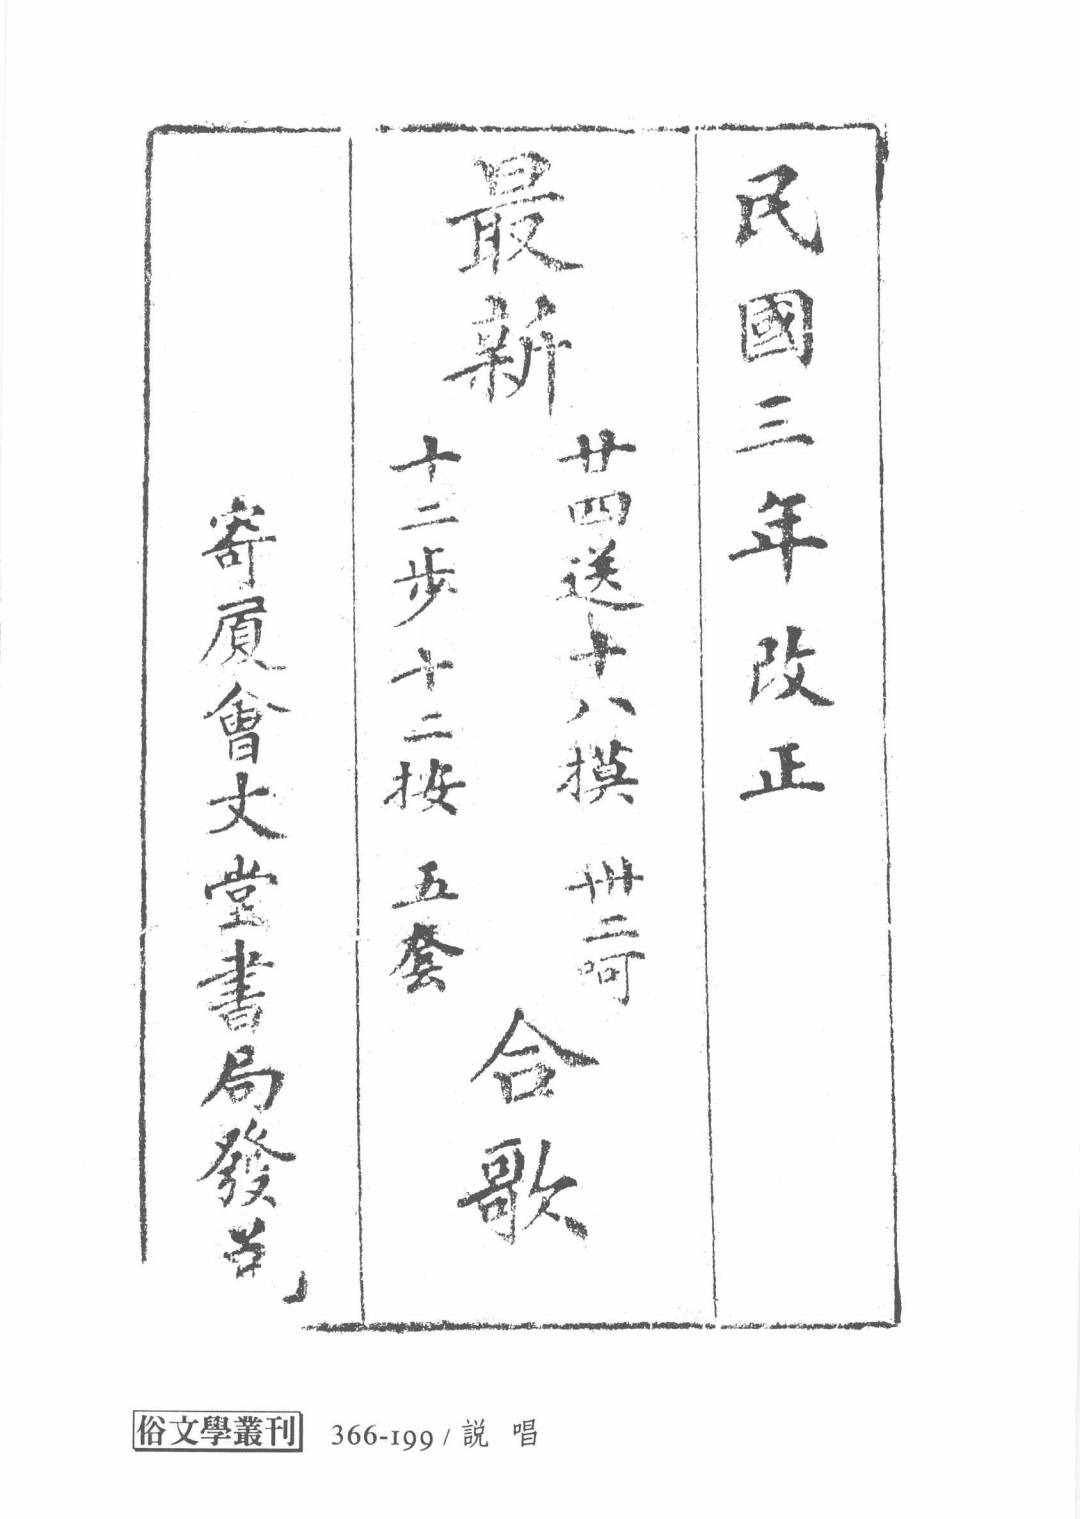 民國三年改正
最新
廿四送十八摸 卌二呵
十二步十二按 五套
合歌
寄廈會文堂書局發
俗文學叢刊 366-199 / 説 唱